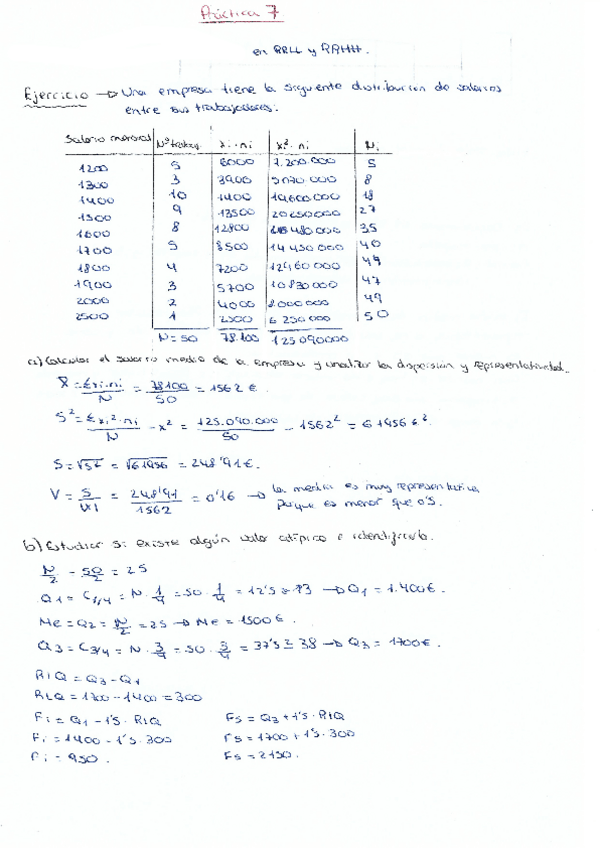 Práctica 7
en RRLL y RRHH.
Ejercicio → Una empresa tiene la siguiente distribución de salarios
entre sus trabajadores:
Salario mensual Nº trabaj. xi·ni xi²·ni Ni
1200 5 6000 7.200.000 5
1300 3 3900 5070.000 8
1400 10 1400 19600000 18
1500 9 13500 20250000 27
1600 8 12800 20 480 000 35
1700 5 8500 14 450 000 40
1800 4 7200 12960 000 44
1900 3 5700 10 830 000 47
2000 2 4000 8000 000 49
2500 1 2500 6 250 000 50
N=50 78.100 125 090000
a) Calcular el salario medio de la empresa y analizar la dispersión y representatividad.
x̄ = Σxi·ni / N = 78100 / 50 = 1562 €.
S² = Σxi²·ni / N - x² = 125.090.000 / 50 - 1562² = 61956 €².
S = √S² = √61956 = 248'91 €.
V = S / |x| = 248'91 / 1562 = 0'16 → la media es muy representativa
porque es menor que 0'5.
b) Estudiar si existe algún valor atípico e identifícarlo.
N/2 - 50/2 = 25
Q1 = C1/4 = N · 1/4 = 50 · 1/4 = 12'5 ≈ 13 → Q1 = 1.400 €.
Me = Q2 = N/2 = 25 → Me = 1500 €.
Q3 = C3/4 = N · 3/4 = 50 · 3/4 = 37'5 ≈ 38 → Q3 = 1700 €.
RIQ = Q3 - Q1
RIQ = 1700 - 1400 = 300
Fi = Q1 - 1'5 · RIQ Fs = Q3 + 1'5 · RIQ
Fi = 1400 - 1'5 · 300 Fs = 1700 + 1'5 · 300
Fi = 950. Fs = 2150.